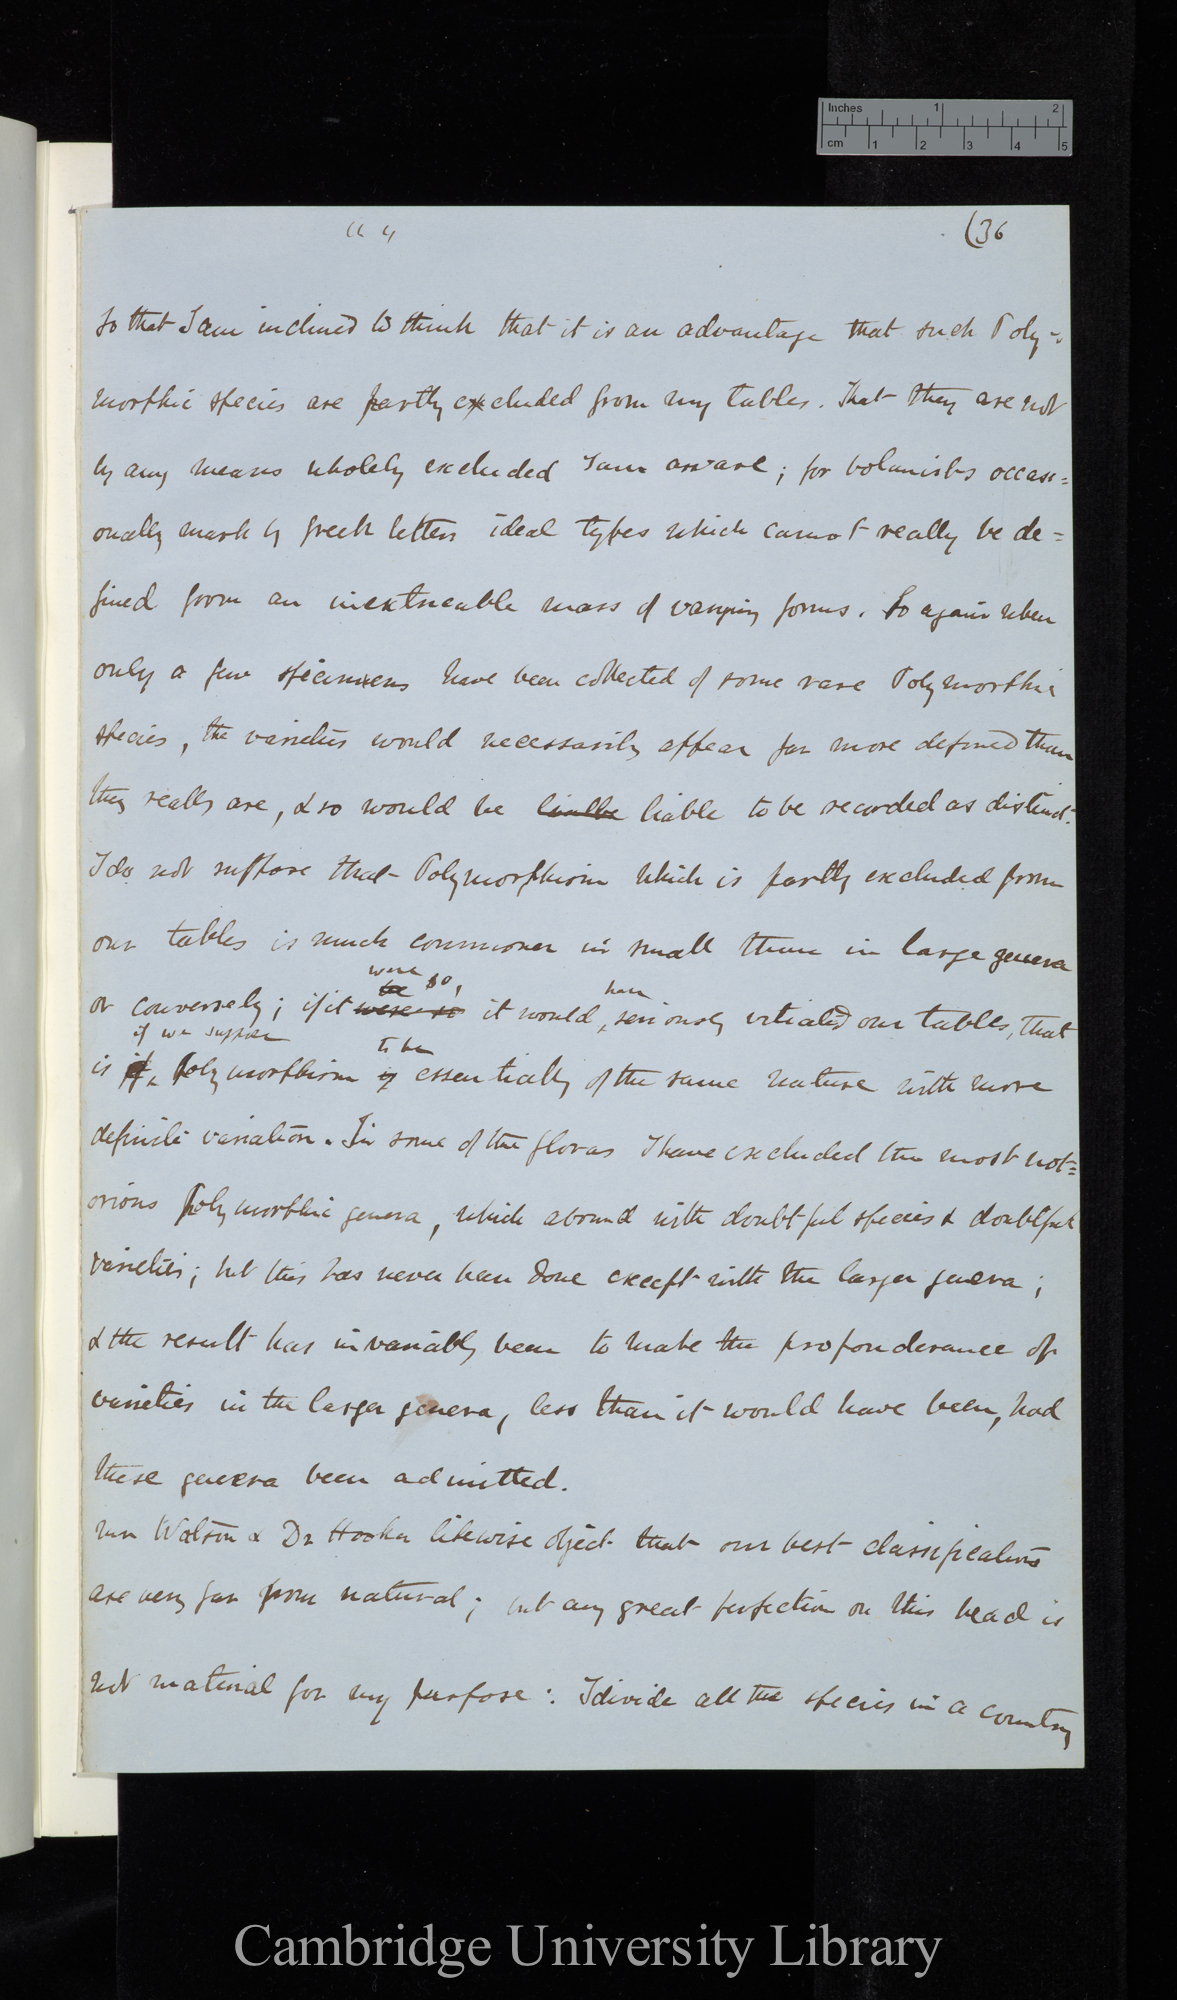 Inches 1 2
cm 1 2 3 4 5
a 4
(36
so that I am inclined to think that it is an advantage that such Poly-
morphic species are partly excluded from my tables. That they are not
by any means wholely excluded I am aware; for botanists occasi=
onally mark by greek letters ideal types which cannot really be de=
fined from an inextricable mass of varying forms. So again when
only a few specimens have been collected of some rare Polymorphic
species, the varieties would necessarily appear far more defined than
they really are, & so would be liable to be recorded as distinct.
I do not suppose that Polymorphism which is partly excluded from
our tables is much commoner in small than in large genera
were so,
be have
or conversely; if it were so it would, seriously vitiated our tables, that
if we suppose to be
is if Polymorphism is essentially of the same nature with more
definite variation. In some of the floras I have excluded the most not=
orious Polymorphic genera, which abound with doubtful species & doubtful
varieties; but this has never been done except with the larger genera;
& the result has invariably been to make the proponderance of
varieties in the larger genera, less than it would have been, had
these genera been admitted.
Mr Watson & Dr Hooker likewise object that our best classifications
are very far from natural; but any great perfection on this head is
not material for my purpose: I divide all the species in a country
Cambridge University Library